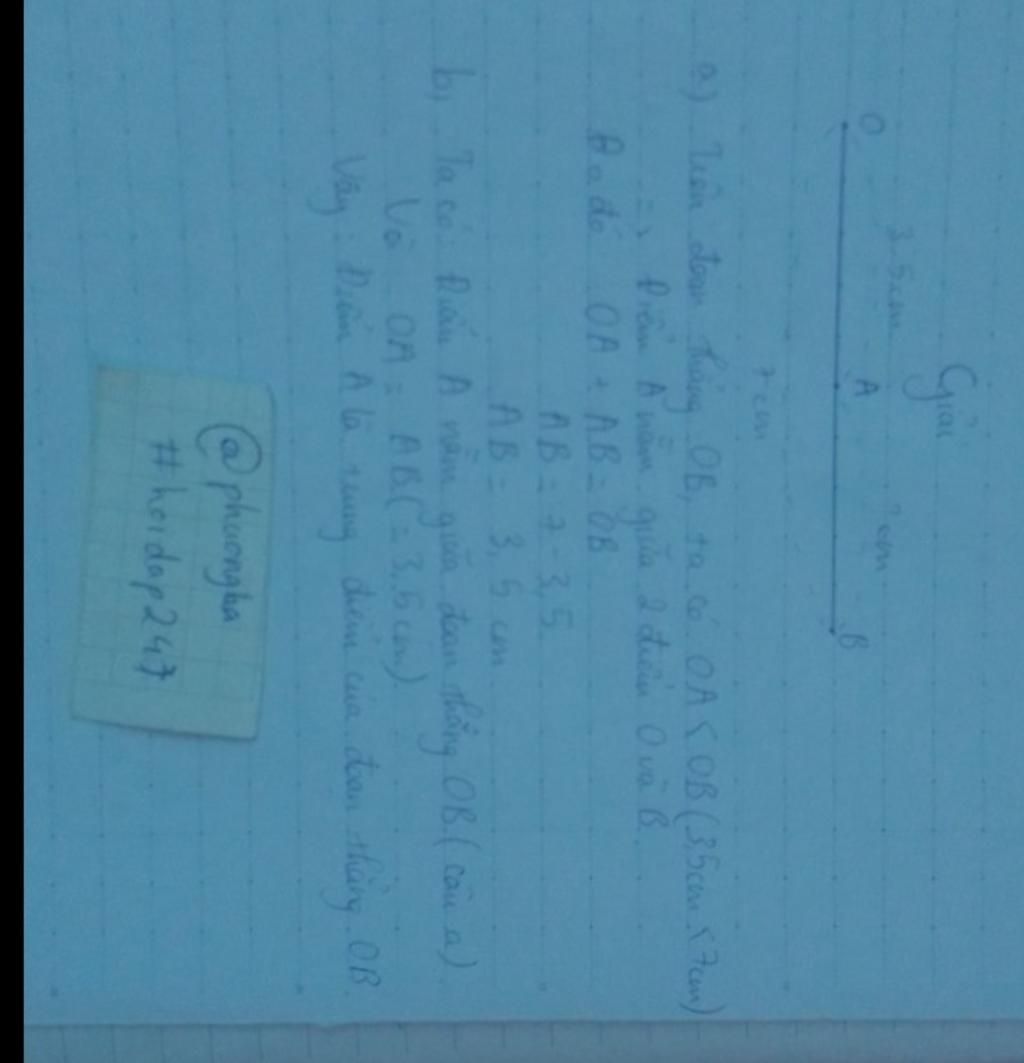 Giải
3,5cm ? cm
O A B
7 cm
a) Trên đoạn thẳng OB, ta có OA < OB (3,5cm < 7cm)
=> Điểm A nằm giữa 2 điểm O và B.
Do đó OA + AB = OB
AB = 7 - 3,5
AB = 3,5 cm
b, Ta có: Điểm A nằm giữa đoạn thẳng OB (câu a)
Và OA = AB (= 3,5 cm)
Vậy: Điểm A là trung điểm của đoạn thẳng OB.
@phuongha
#hoidap247